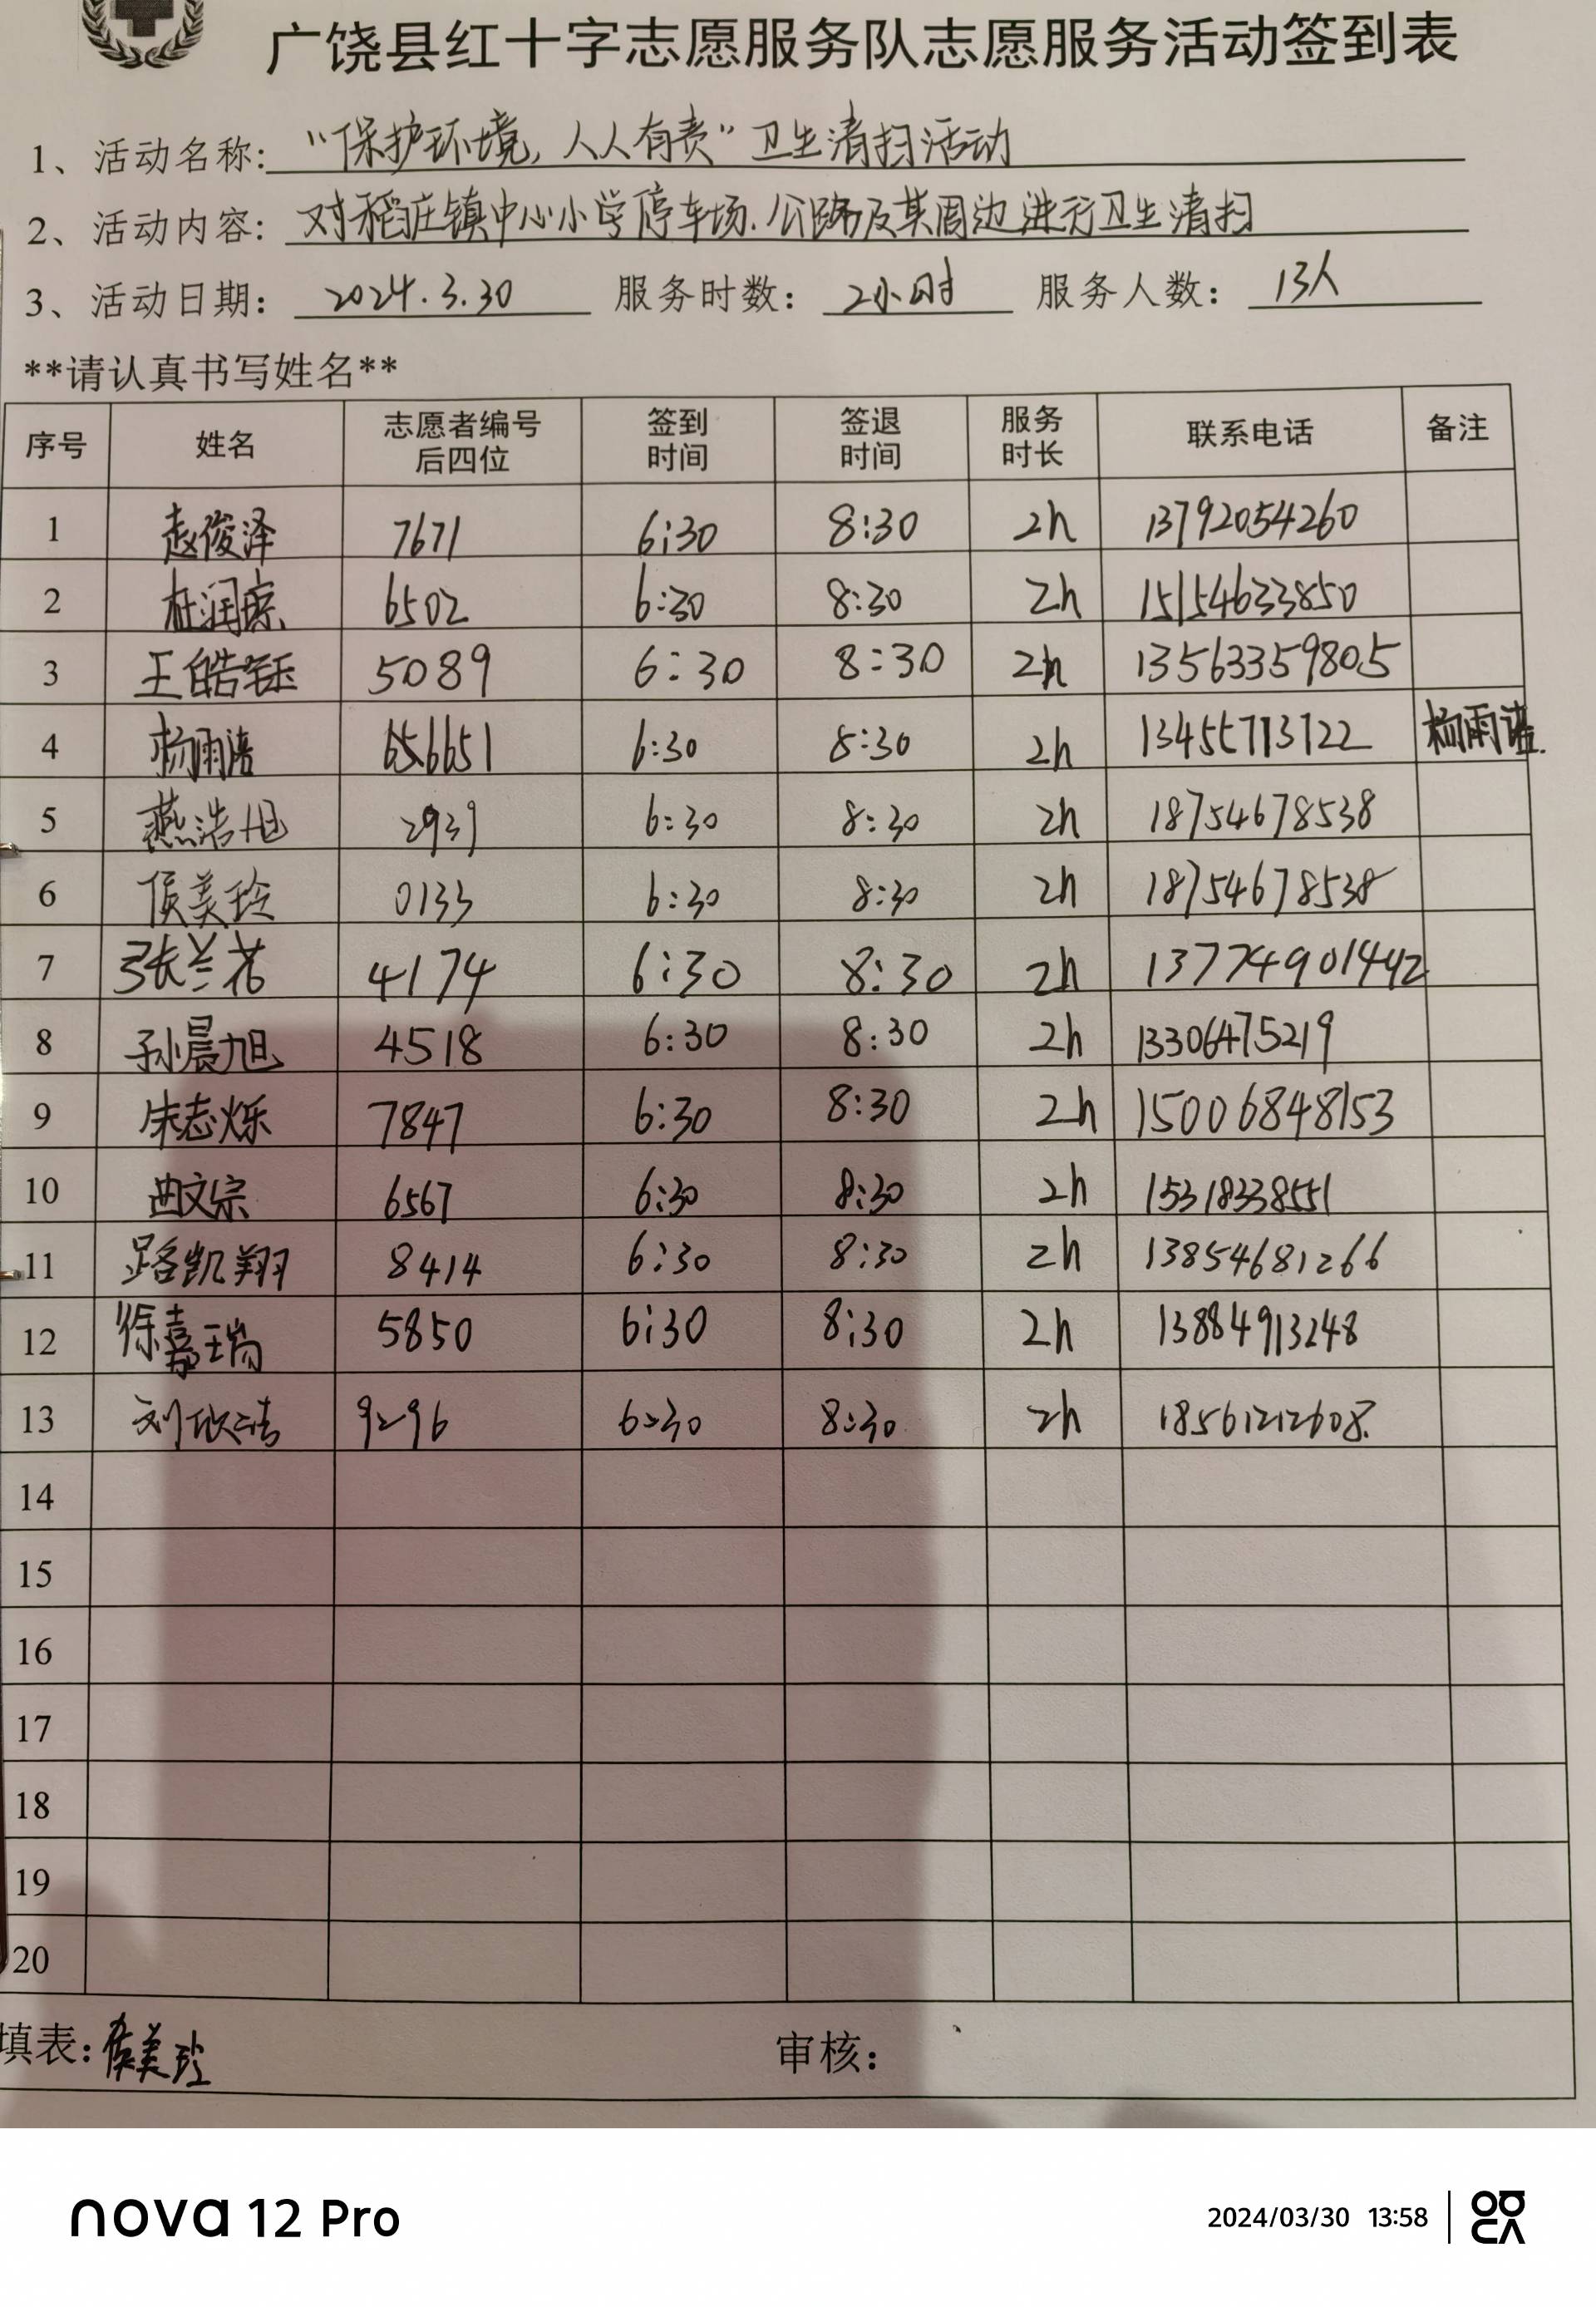 广饶县红十字志愿服务队志愿服务活动签到表
1、活动名称:“保护环境,人人有责”卫生清扫活动
2、活动内容:对稻庄镇中心小学停车场.公路及其周边进行卫生清扫
3、活动日期: 2024.3.30 服务时数: 2小时 服务人数: 13人
**请认真书写姓名**
序号 姓名 志愿者编号后四位 签到时间 签退时间 服务时长 联系电话 备注
1 赵俊泽 7671 6:30 8:30 2h 13792054260
2 杜润琮 6502 6:30 8:30 2h 15154633850
3 王皓钰 5089 6:30 8:30 2h 13563359805
4 杨雨 6:30 8:30 2h 13455713122 杨雨
5 燕浩旭 2939 6:30 8:30 2h 18754678538
6 侯美玲 0133 6:30 8:30 2h 18754678538
7 张兰若 4174 6:30 8:30 2h 13774901442
8 孙晨旭 4518 6:30 8:30 2h 13306475219
9 朱志烁 7847 6:30 8:30 2h 15006848153
10 曲文宗 6567 6:30 8:30 2h 15318338551
11 路凯翔 8414 6:30 8:30 2h 13854681266
12 徐嘉瑞 5850 6:30 8:30 2h 13884913248
13 刘欣洁 9296 6:30 8:30 2h 18561212608.
14
15
16
17
18
19
20
填表:侯美玲 审核:
nova 12 Pro
2024/03/30 13:58